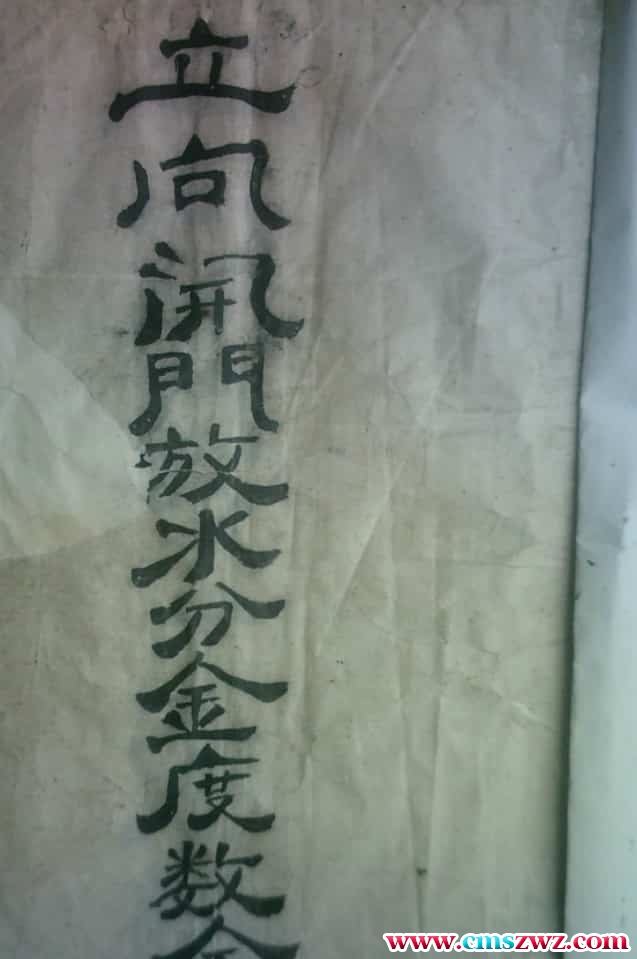 立向開門放水分金度数
www.cmszwz.com